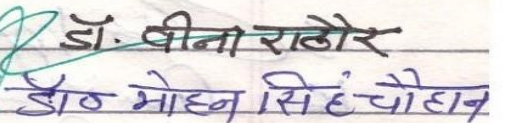 डॉ. वीना राठौर
डॉ० मोहन सिंह चौहान